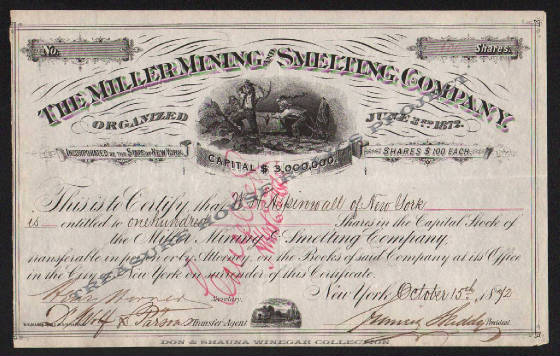 No. Shares.
THE MILLER MINING AND SMELTING COMPANY.
ORGANIZED JUNE 3RD 1872.
INCORPORATED BY THE STATE OF NEW YORK. CAPITAL $ 3,000,000. SHARES $ 100 EACH.
This is to Certify that Aspinwall of New York
is entitled to one hundred Shares in the Capital Stock of
the Miller Mining & Smelting Company,
transferable in person or by Attorney, on the Books of said Company at its Office
in the City of New York on surrender of this Certificate.
New York October 15th, 1872
Secretary.
De Wolf & Parsons Transfer Agent President
DON & SHAUNA WINEGAR COLLECTION